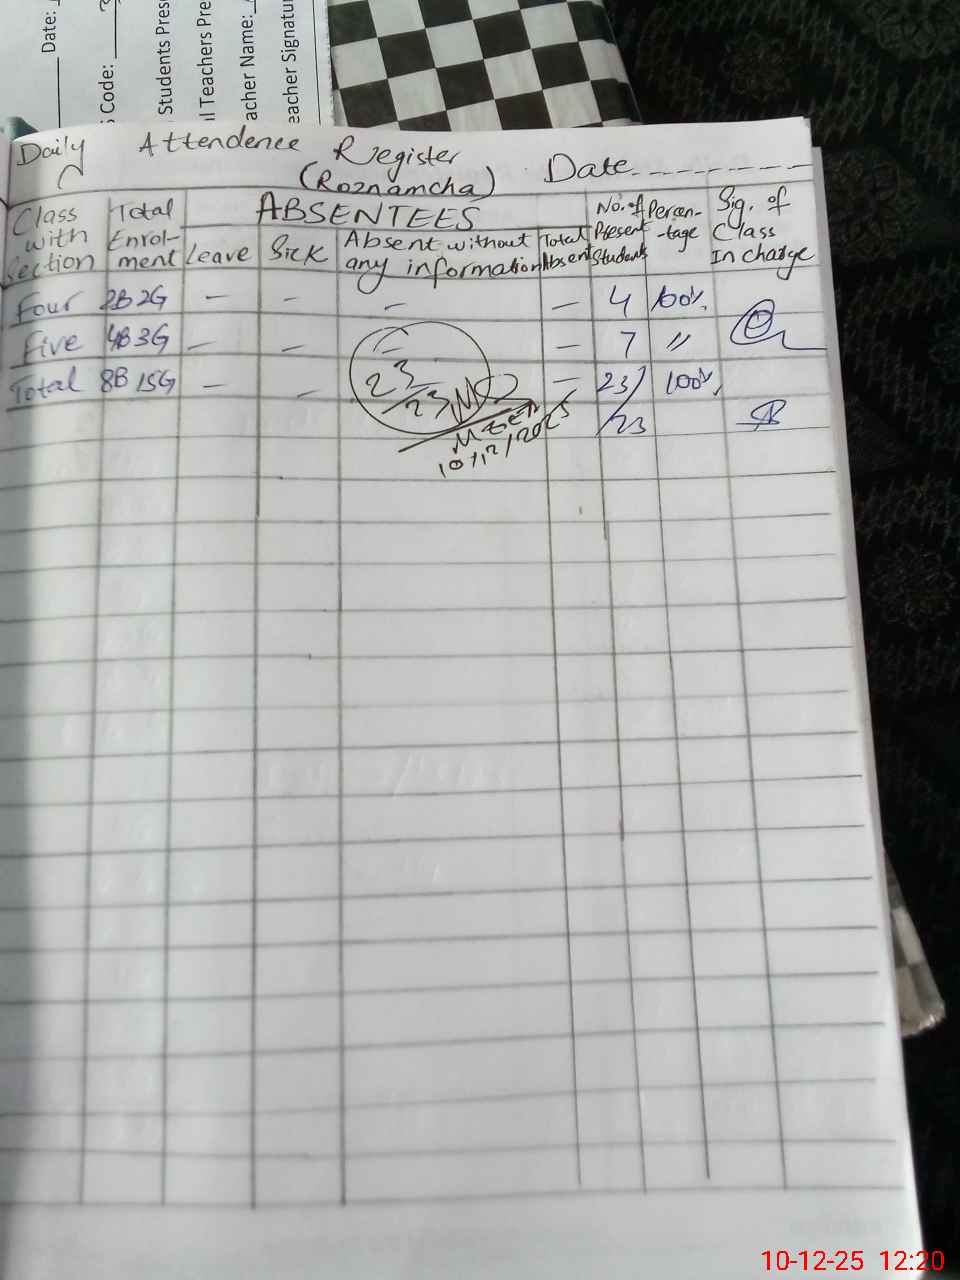 Date:
Code:
Students Prese
l Teachers Pre
acher Name:
eacher Signatur
Daily Attendence Register
(Roznamcha) Date
Class with Section Total Enrol-ment ABSENTEES No. of Present Students Percen-tage Sig. of Class In charge
Leave Sick Absent without any information Total Absent
Four 2B 2G – – – – 4 100%
Five 4B 3G – – – – 7 "
Total 8B 15G – – – 23/23 100%
23/23
10/12/2025
10-12-25 12:20